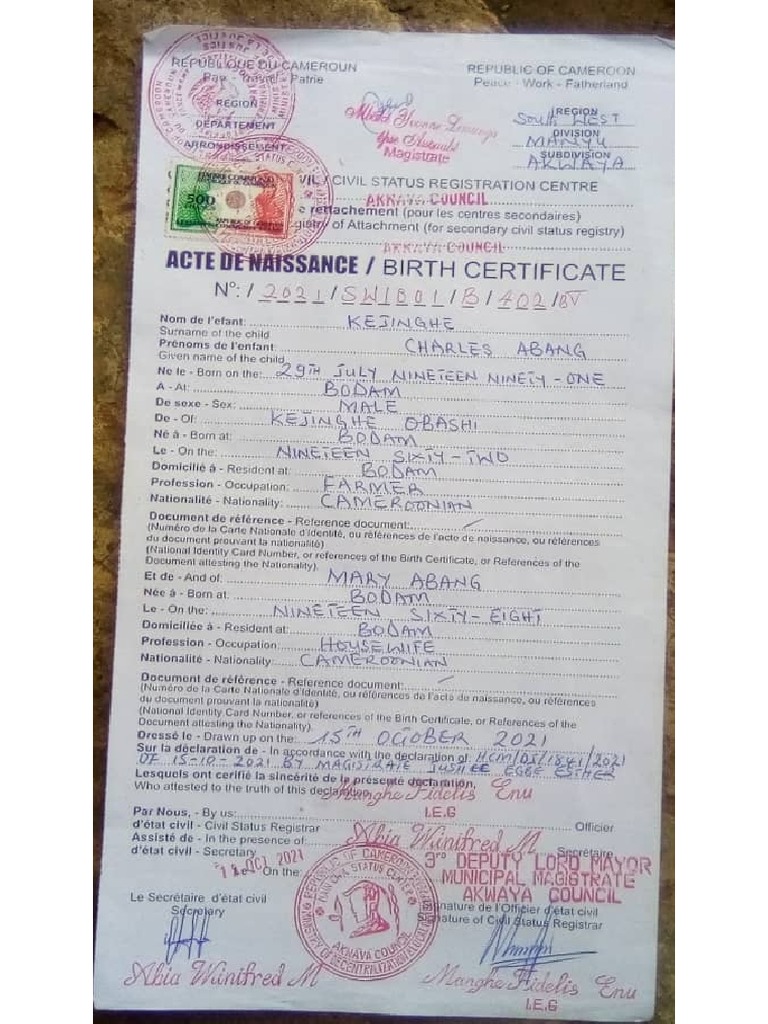 REPUBLIQUE DU CAMEROUN
Paix - Travail - Patrie
REGION
DÉPARTEMENT
ARRONDISSEMENT
REPUBLIC OF CAMEROON
Peace - Work - Fatherland
REGION
SOUTH WEST
DIVISION
MANYU
SUBDIVISION
AKWAYA
Magistrate
500
VIL / CIVIL STATUS REGISTRATION CENTRE
AKWAYA COUNCIL
rettachement (pour les centres secondaires)
gistry of Attachment (for secondary civil status registry)
AKWAYA COUNCIL
ACTE DE NAISSANCE / BIRTH CERTIFICATE
N°: / 2021 / SW1801 / B / 402 / BT
Nom de l'efant: KEJINGHE
Surname of the child
Prénoms de l'enfant: CHARLES ABANG
Given name of the child
Ne le - Born on the: 29TH JULY NINETEEN NINETY-ONE
A - At: BODAM
De sexe - Sex: MALE
De - Of: KEJINGHE OBASHI
Né à - Born at: BODAM
Le - On the: NINETEEN SIXTY-TWO
Domicilié à - Resident at: BODAM
Profession - Occupation: FARMER
Nationalité - Nationality: CAMEROONIAN
Document de référence - Reference document: /
(Numéro de la Carte Nationale d'Identité, ou références de l'acte de naissance, ou références
du document prouvant la nationalité)
(National Identity Card Number, or references of the Birth Certificate, or References of the
Document attesting the Nationality).
Et de - And of: MARY ABANG
Née à - Born at: BODAM
Le - On the: NINETEEN SIXTY-EIGHT
Domiciliée à - Resident at: BODAM
Profession - Occupation: HOUSEWIFE
Nationalité - Nationality: CAMEROONIAN
Document de référence - Reference document: /
(Numéro de la Carte Nationale d'Identité, ou références de l'acte de naissance, ou références
du document prouvant la nationalité)
(National Identity Card Number, or references of the Birth Certificate, or References of the
Document attesting the Nationality).
Dressé le - Drawn up on the: 15TH OCTOBER 2021
Sur la déclaration de - In accordance with the declaration of: HCM/DS/1841/2021
OF 15-10-2021 BY MAGISTRATE JUSTICE EGBE ESTHER
Lesquels ont certifié la sincérité de la présente déclaration,
Who attested to the truth of this declaration
Manghe Fidelis Enu
I.E.G
Par Nous, - By us: Officier
d'état civil - Civil Status Registrar
Abia Winifred M
Assisté de - In the presence of: Secrétaire
d'état civil - Secretary
OCT 2021
On the
3rd DEPUTY LORD MAYOR
MUNICIPAL MAGISTRATE
AKWAYA COUNCIL
Le Secrétaire d'état civil
Secretary
Signature de l'Officier d'état civil
Signature of Civil Status Registrar
REPUBLIC OF CAMEROON
AKWAYA COUNCIL
Abia Winifred M
Manghe Fidelis Enu
I.E.G